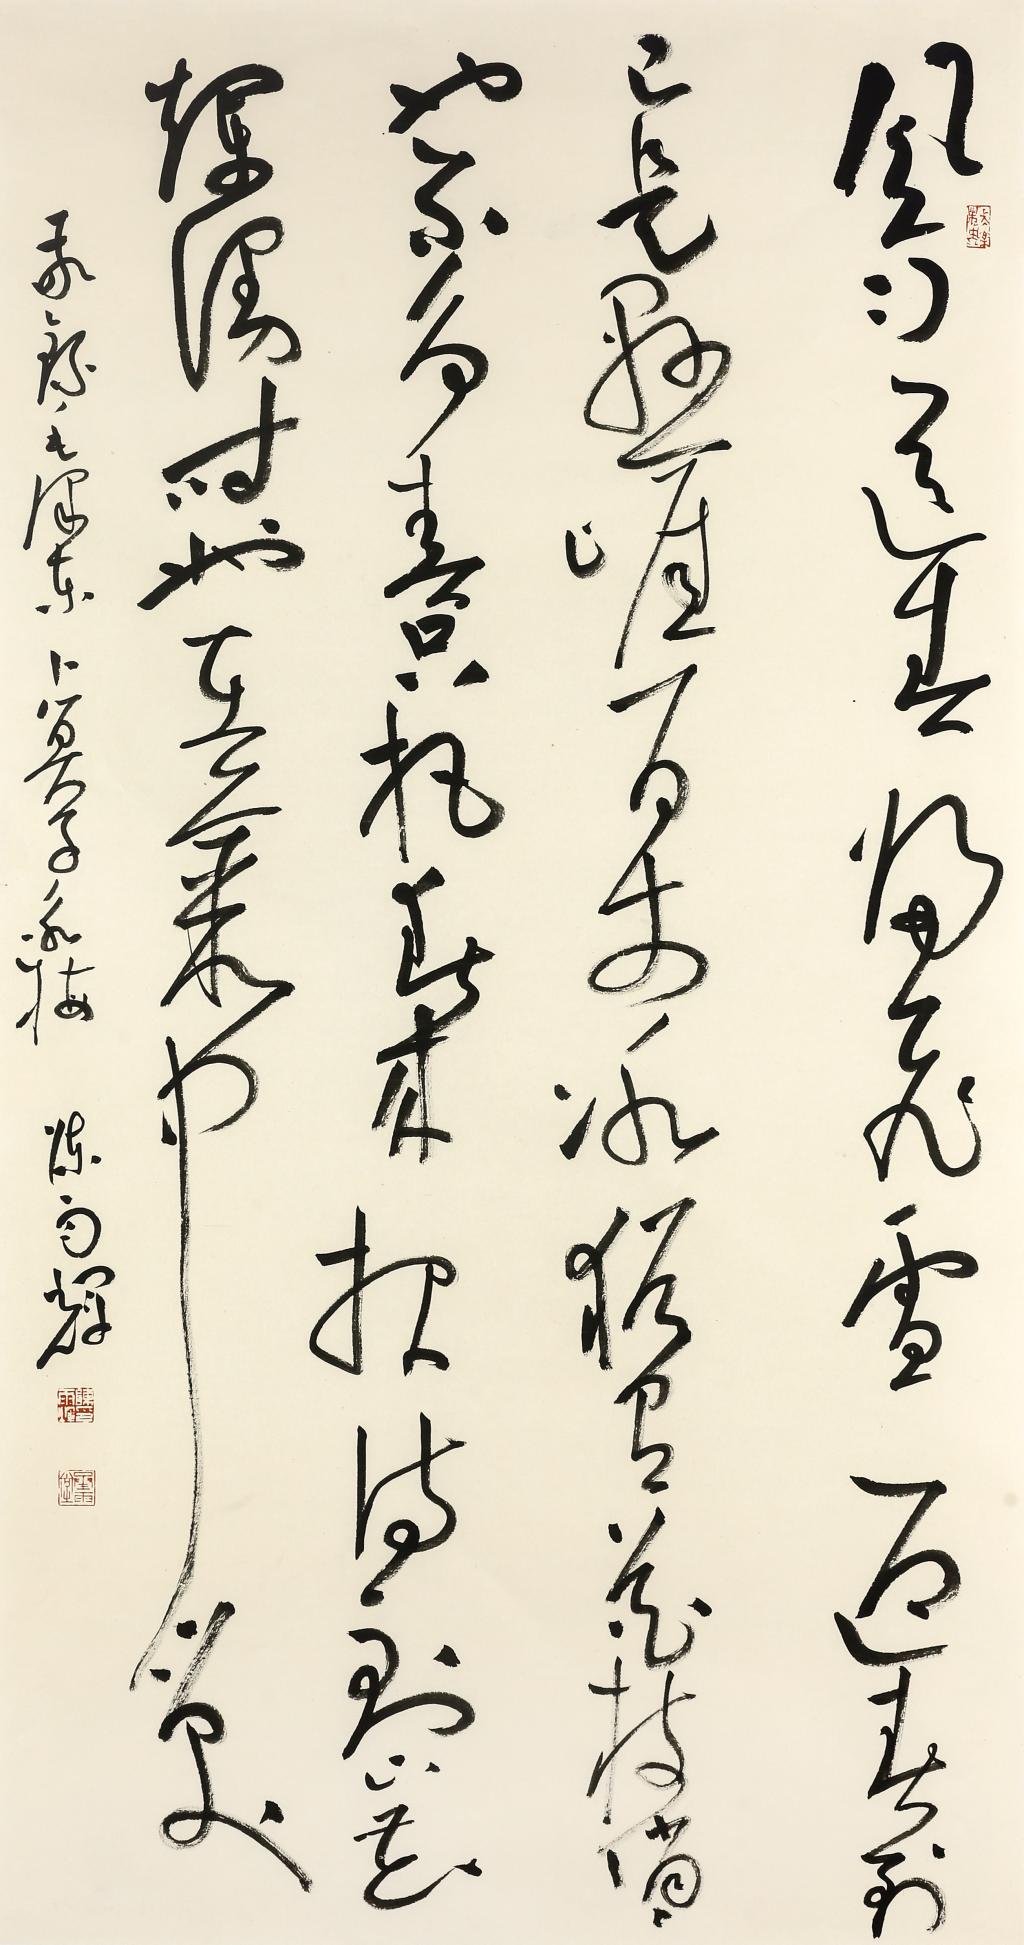 風雨送春歸飛雪迎春到
已是懸崖百丈冰猶有花枝俏
也不爭春只把春來報待到山花
爛漫時她在叢中笑
錄毛澤東卜算子詠梅